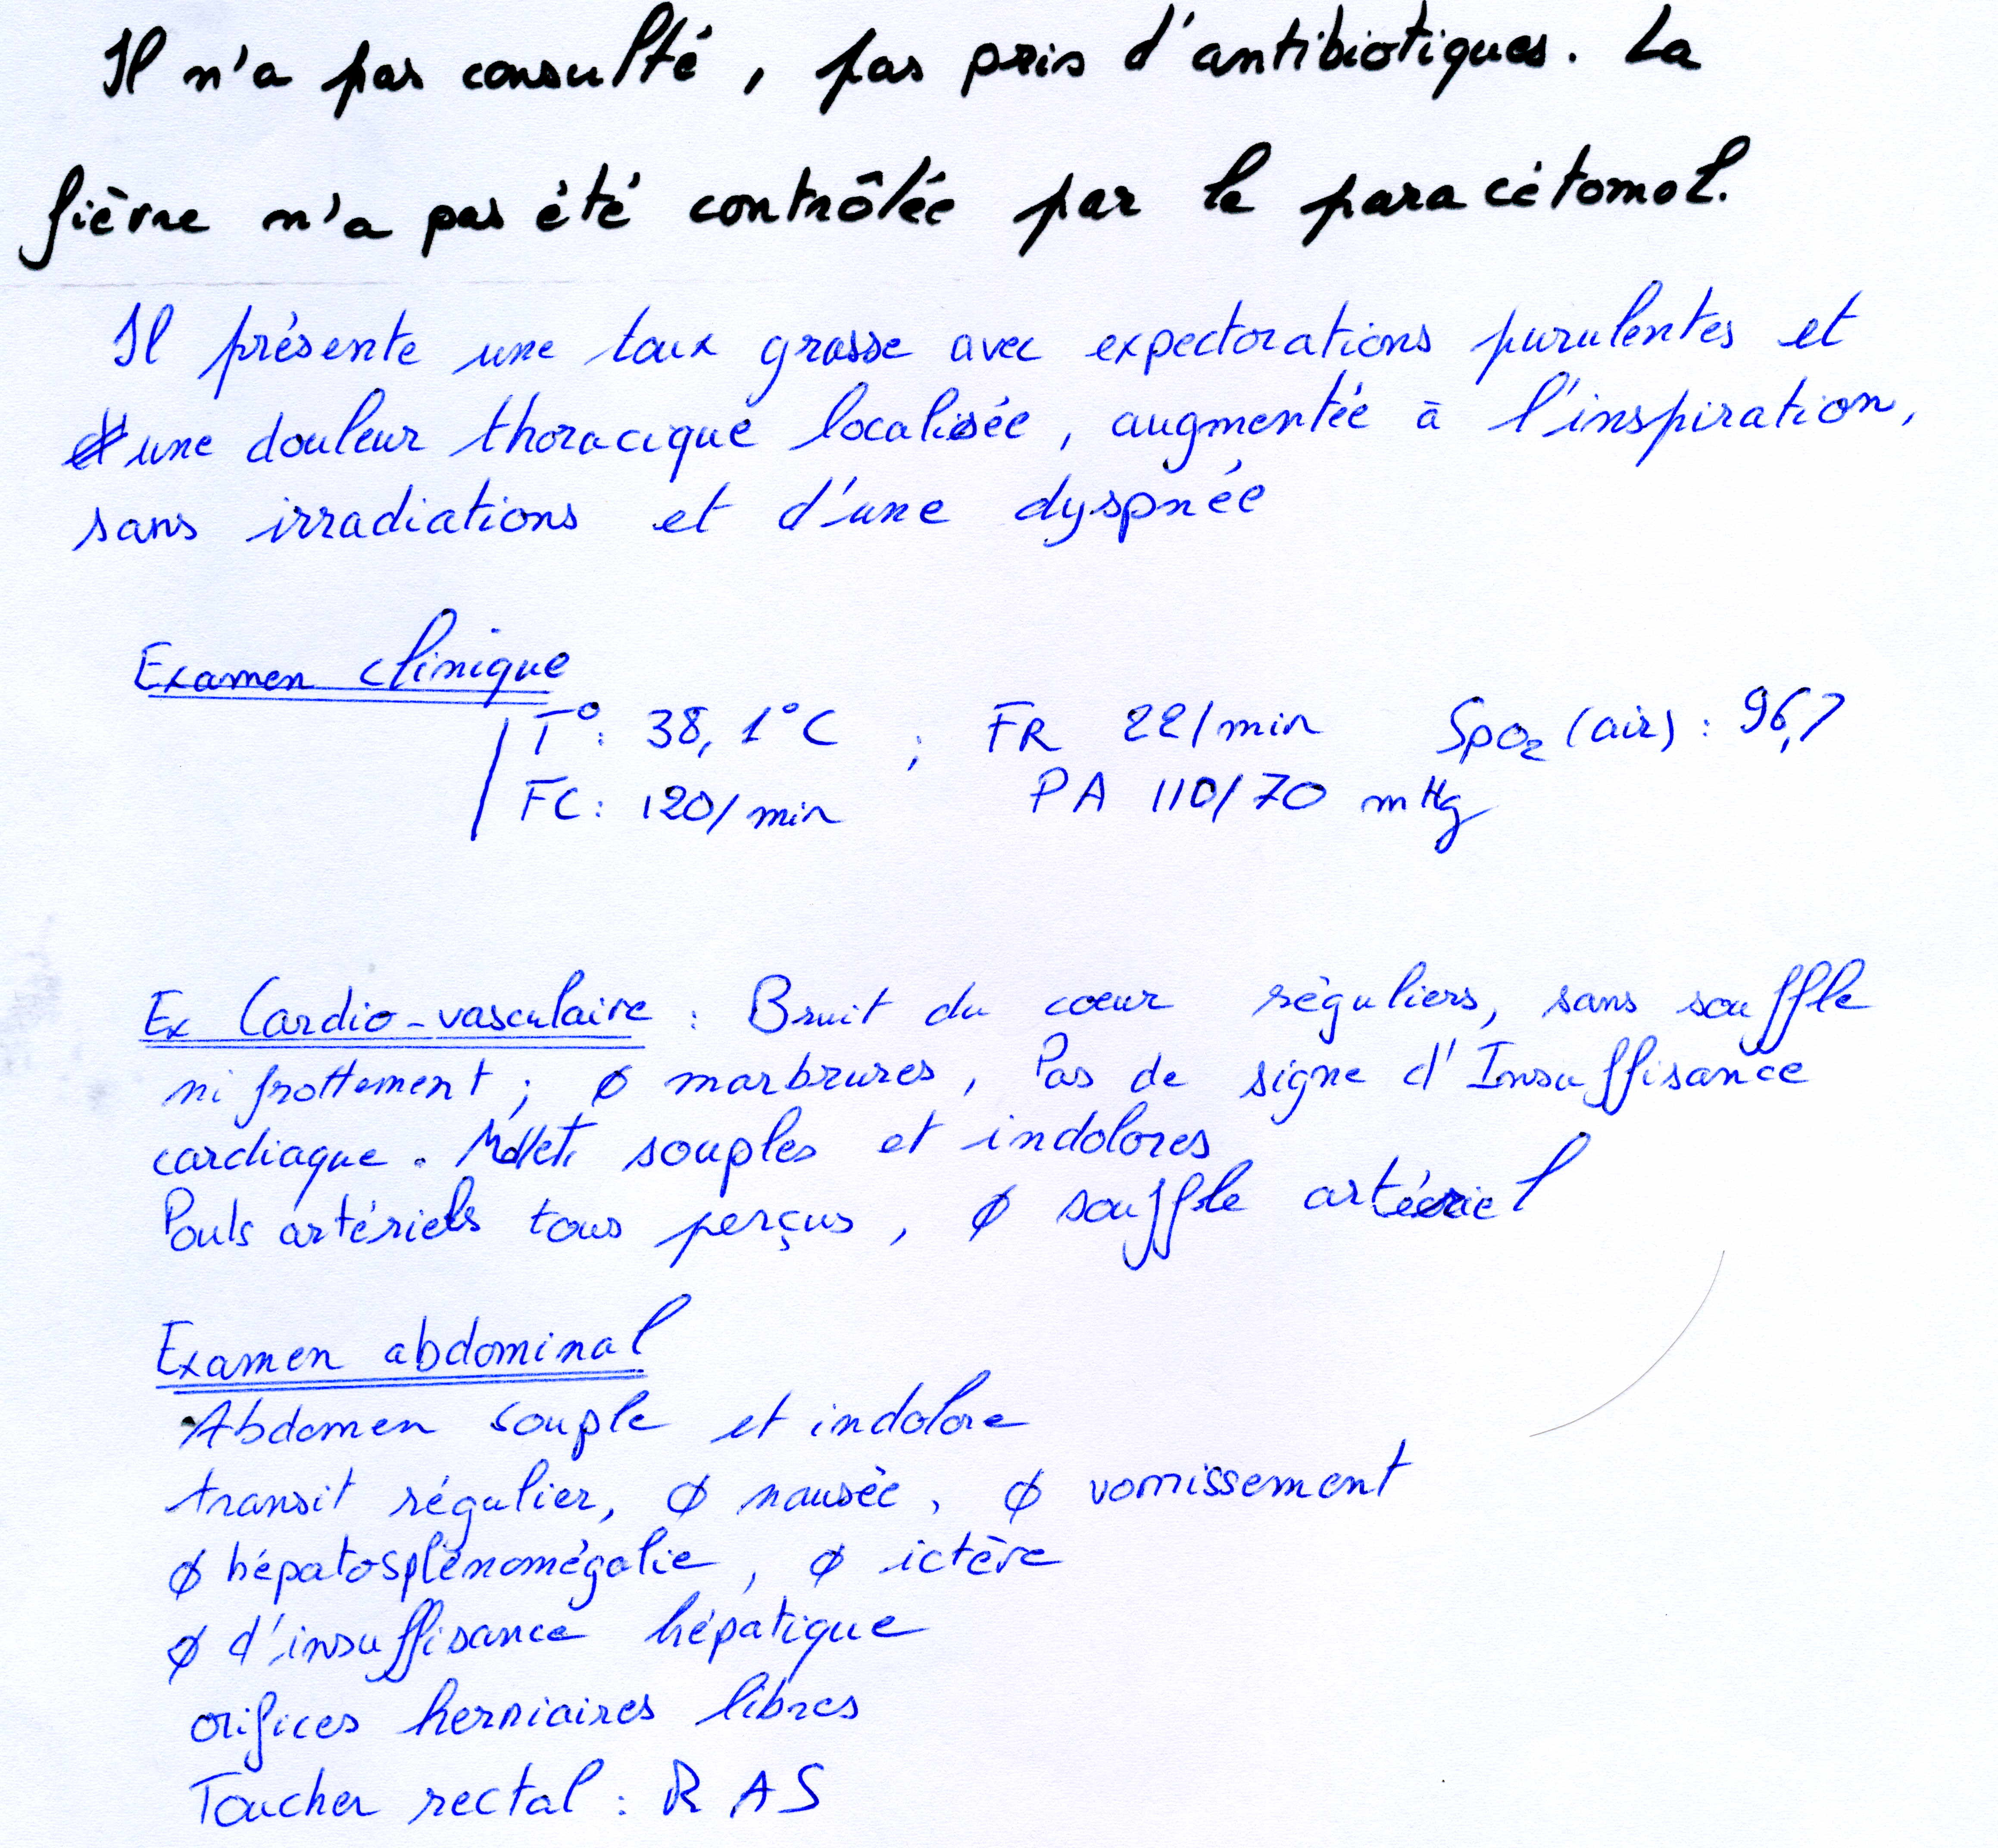 Il n'a pas consulté, pas pris d'antibiotiques. La
fièvre n'a pas été contrôlée par le paracétomol.
Il présente une toux grasse avec expectorations purulentes et
une douleur thoracique localisée, augmentée à l'inspiration,
sans irradiations et d'une dyspnée
Examen clinique
T°: 38,1°C ; FR 22/min SpO2 (air) : 96,7
FC: 120/min PA 110/70 mHg
Ex Cardio-vasculaire : Bruit du cœur réguliers, sans souffle
ni frottement ; ø marbrures, Pas de signe d'Insuffisance
cardiaque. Mollets souples et indolores
Pouls artériels tous perçus, ø souffle artériel
Examen abdominal
Abdomen souple et indolore
transit régulier, ø nausée, ø vomissement
ø hépatosplénomégalie, ø ictère
ø d'insuffisance hépatique
orifices herniaires libres
Toucher rectal : RAS